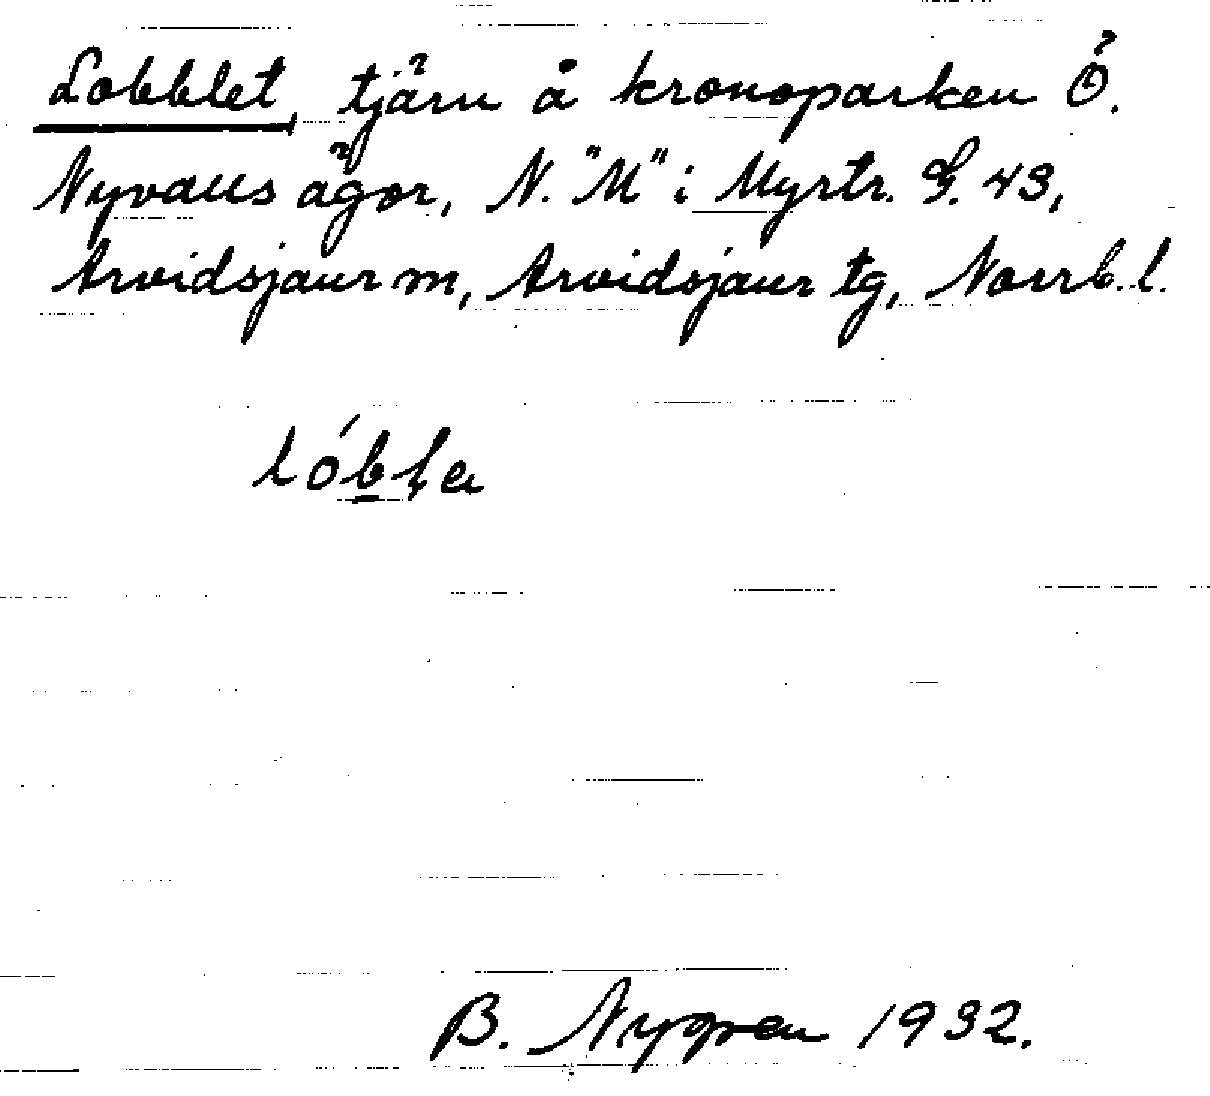 Lobblet, tjärn å kronoparken Ö.
Nyvalls ägor, N. "M" i Myrtr. G. 43,
Arvidsjaur m, Arvidsjaur tg, Norrb. l.
B. Nygren 1932.